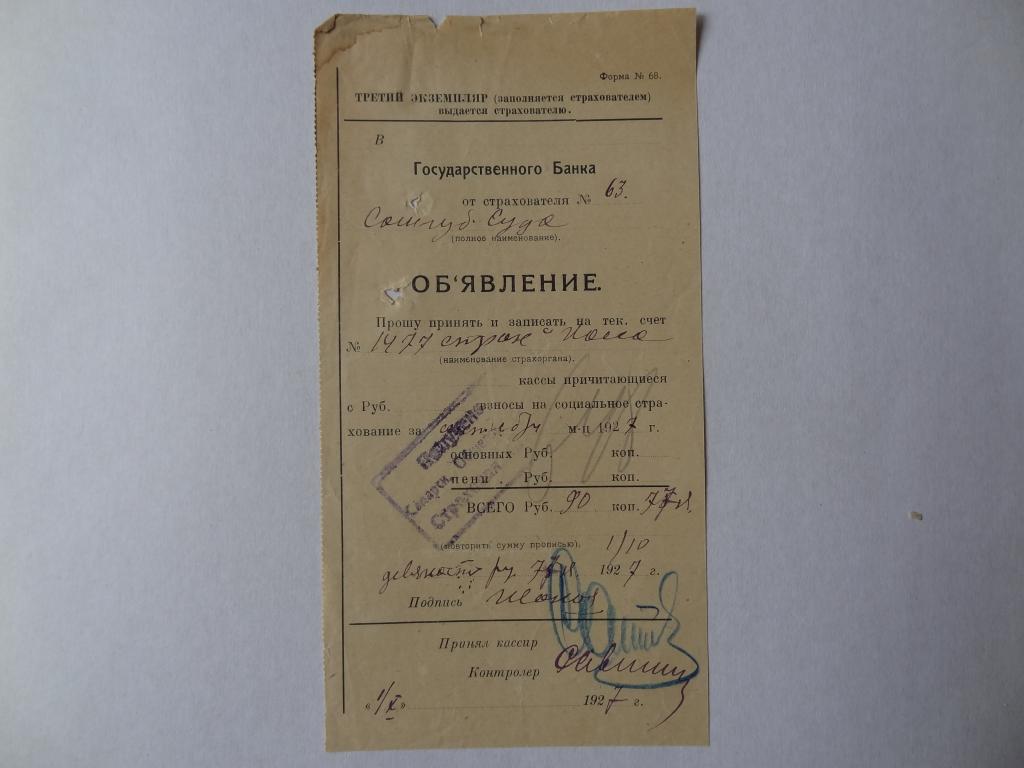 Форма № 68.
ТРЕТИЙ ЭКЗЕМПЛЯР (заполняется страхователем)
выдается страхователю.
В
Государственного Банка
от страхователя № 63.
Суда
(полное наименование).
ОБ'ЯВЛЕНИЕ.
Прошу принять и записать на тек. счет
№ 1477 страх
(наименование страхоргана).
кассы причитающиеся
с Руб. взносы на социальное стра-
хование за м-ц 1927 г.
основных Руб. коп.
пени Руб. коп.
ВСЕГО Руб. 90 коп. 77
(повторить сумму прописью). 1/10
девяносто 1927 г.
Подпись
Принял кассир
Контролер
«1/X» 1927 г.
Получено
Страховая